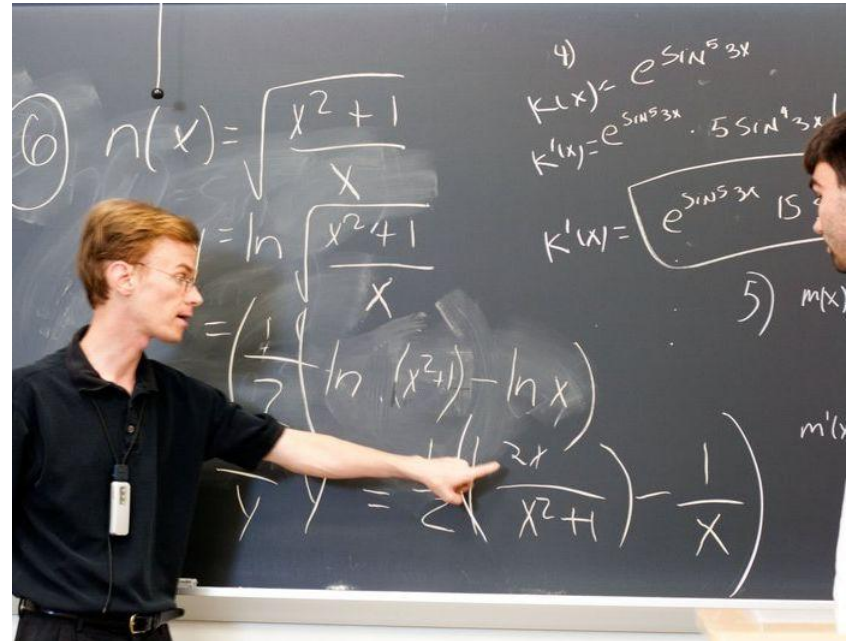 6 n(x) = √((x² + 1)/x)
= ln √((x² + 1)/x)
= (1/2 (ln (x²+1) − ln x)
/y y = 1/2 ((2x/(x²+1)) − 1/x)
4)
K(x) = e^(SIN⁵ 3x)
K'(x) = e^(SIN⁵ 3x) · 5 SIN⁴ 3x
K'(x) = e^(SIN⁵ 3x) 15
5) m(x)
m'(x